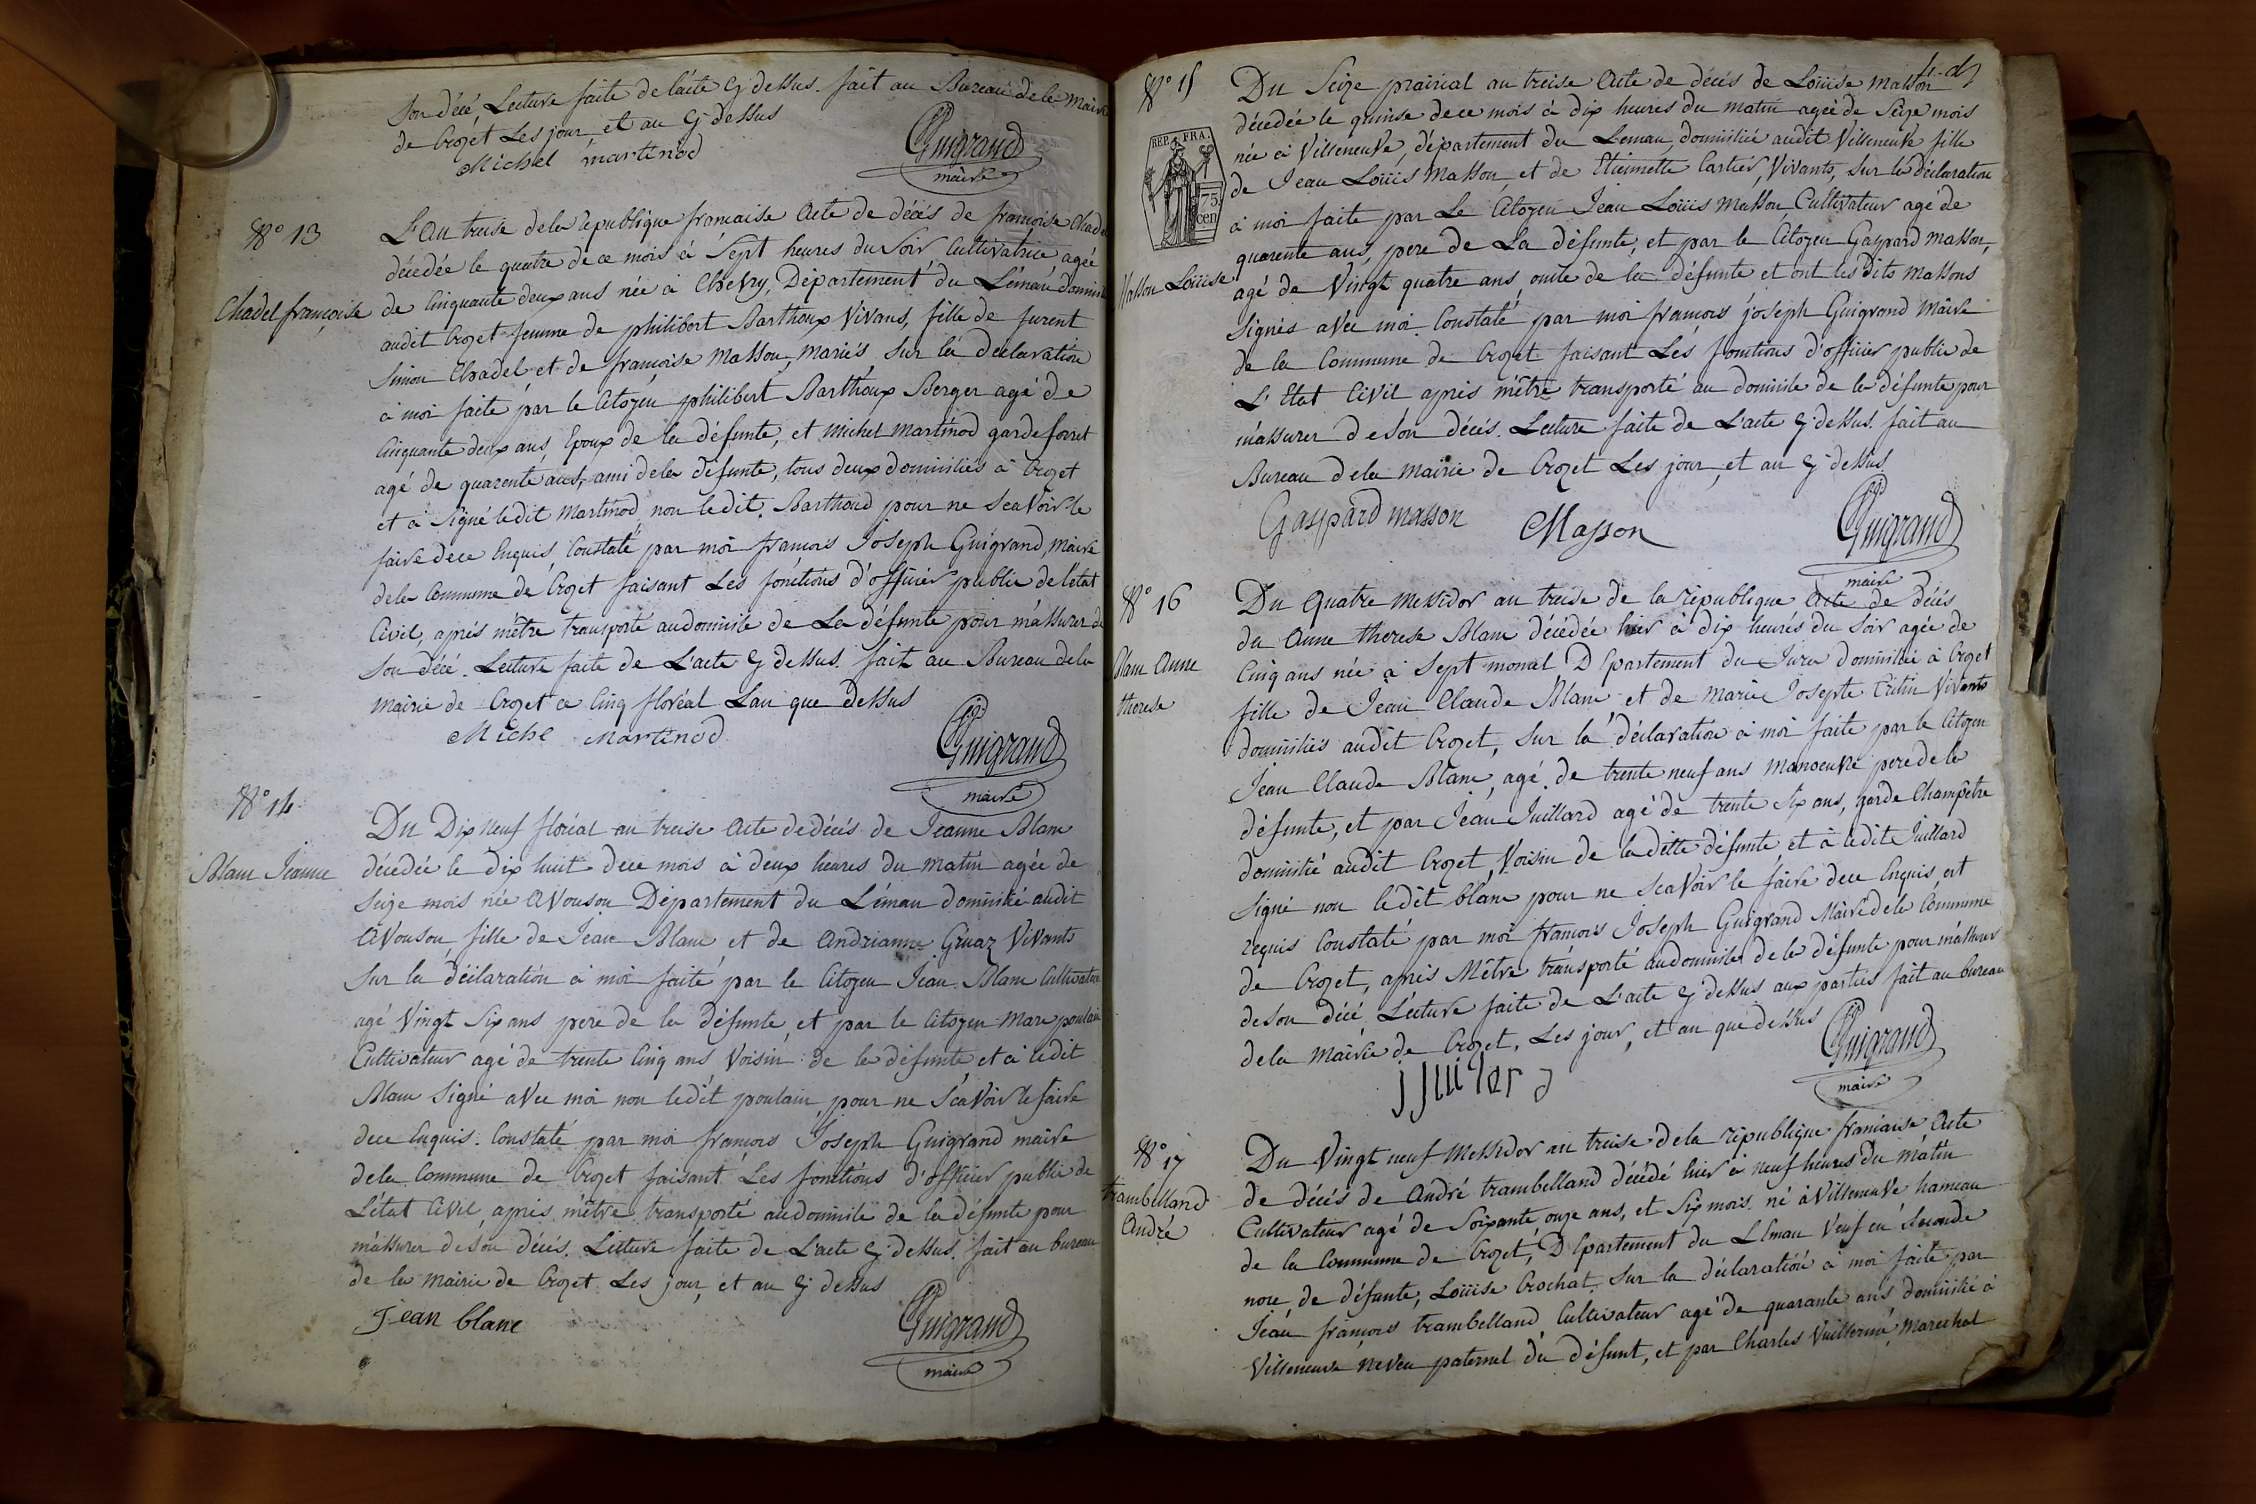 Son décé, Lecture faite de l'acte cy dessus. fait au Bureau de la Mairie
de Crozet Les jour et an cy dessus
Michel martinod
Guigrand
maire
N° 13
Chadel françoise
L'an treise de la republique francaise Acte de décés de francoise Chadel
décedée le quatre de ce mois à Sept heures du Soir, Cultivatrice agée
de Cinquante deux ans née à Chevry, Département du Léman domiciliée
audit Crozet femme de philibert Barthoux Vivans, fille de furent
Simon Chadel et de françoise Masson, Mariés, Sur la declaration
à moi faite par le Citoyen philibert Barthoux Berger agé de
Cinquante deux ans, Epoux de la défunte, et Michel Martinod garde foret
agé de quarente ans, ami de la défunte, tous deux domiciliés à Crozet
et à Signé ledit Martinod non ledit Barthoud pour ne Scavoir le
faire de ce Enquis, Constaté par moi francois Joseph Guigrand, Maire
de la Commune de Crozet faisant Les fonctions d'officier public de l'état
Civil, aprés m'être transporté au domicile de La défunte pour m'assurer de
Son décé. Lecture faite de L'acte cy dessus. fait au Bureau de la
Mairie de Crozet ce Cinq floréal L'an que dessus
Michel Martinod
Guigrand
maire
N° 14
Blanc Jeanne
Du Dix Neuf floréal an treise Acte de décés de Jeanne Blanc
décedée le dix huit de ce mois à deux heures du matin agée de
Seize mois née Avouson Département du Léman domiciliée audit
Avouson, fille de Jean Blanc et de Andrianne Gruaz Vivants
Sur la déclaration à moi faite par le Citoyen Jean Blanc Cultivateur
agé Vingt Six ans pere de la défunte, et par le Citoyen Marc poulain
Cultivateur agé de trente Cinq ans, Voisin de la défunte, et à ledit
Blanc Signé avec moi non ledit poulain, pour ne Scavoir le faire
de ce Enquis. Constaté par moi francois Joseph Guigrand maire
de la Commune de Crozet faisant Les fonctions d'officier public de
L'état Civil, aprés m'être transporté au domicile de la défunte pour
m'assurer de Son décés. Lecture faite de L'acte cy dessus. fait au bureau
de la Mairie de Crozet Les jour, et an cy dessus
Jean blanc
Guigrand
maire
N° 15
REP. FRA.
75
cen
Masson Louise
Du Seize prairial an treise Acte de décés de Loüise Masson
décedée le quinse de ce mois à dix heures du matin agée de Seize mois
née à Villeneuve, département du Leman, domiciliée audit Villeneuve fille
de Jean Loüis Masson, et de Etiennette Cartier, Vivants, Sur la Déclaration
à moi faite par Le Citoyen Jean Loüis Masson, Cultivateur agé de
quarente ans, pere de La défunte, et par le Citoyen Gaspard Masson,
agé de Vingt quatre ans, oncle de la défunte et ont les Dits Massons
Signés avec moi Constaté par moi francois joseph Guigrand Maire
de la Commune de Crozet faisant Les fonctions d'officier public de
L'Etat Civil aprés m'être transporté au domicile de la défunte pour
m'assurer de Son décés. Lecture faite de L'acte cy dessus. fait au
Bureau de la Mairie de Crozet Les jour, et an cy dessus
Gaspard masson Masson
Guigrand
maire
N° 16
Blanc Anne
therese
Du Quatre Messidor an treise de la république Acte de décés
de Anne therese Blanc décédée hier à dix heures du Soir agée de
Cinq ans née à Sept moncel Département du Jura domiciliée à Crozet
fille de Jean Claude Blanc et de Marie Josepte Vivants
domiciliés audit Crozet, Sur la déclaration à moi faite par le Citoyen
Jean Claude Blanc, agé de trente neuf ans Manoeuvre pere de la
défunte, et par Jean Juillard agé de trente Six ans, garde Champêtre
domicilié audit Crozet, Voisin de la ditte défunte et à ledit Juillard
Signé non ledit blanc pour ne Scavoir le faire de ce Enquis et
requis Constaté par moi francois Joseph Guigrand Maire de la Commune
de Crozet, aprés M'être transporté au domicile de la défunte pour m'assurer
de Son décé, Lecture faite de L'acte cy dessus aux parties fait au bureau
de la Mairie de Crozet, Les jour, et an que dessus
Guigrand
maire
N° 17
trambelland
André
Du Vingt neuf Messidor an treise de la république francaise Acte
de décés de André trambelland décédé hier à neuf heures du matin
Cultivateur agé de Soixante onze ans, et Six mois, né à Villeneuve hameau
de la Commune de Crozet, Département du Léman Veuf en Seconde
noce de défunte, Loüise Crochat, Sur la déclaration à moi faite par
Jean françois trambelland Cultivateur agé de quarante ans domicilié à
Villeneuve neveu paternel du défunt, et par Charles Vuillermé, Marechal